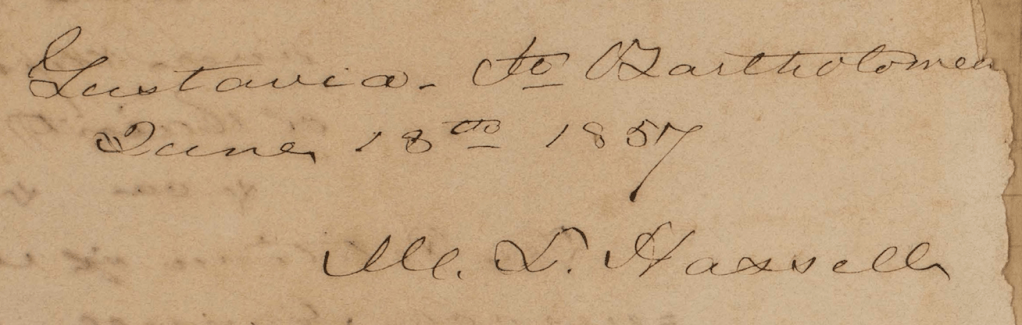 Gustavia. St Bartholomew
June 18th 1857
M. L. Hassell